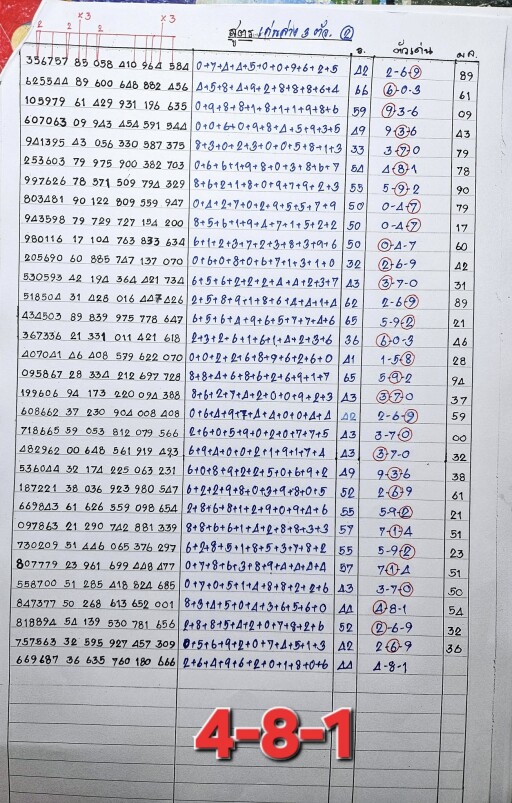 ×3 ×3
2 2 2
สูตร เด่นล่าง 3 ตัว. ②
ตัวเด่น
356757 85 058 410 964 584 0+7+4+4+5+0+0+9+6+2+5 42 2-6-9 89
625544 89 600 648 882 456 4+5+8+4+9+2+8+8+8+6+4 66 6-0-3 61
105979 61 429 931 196 635 0+9+8+8+1+8+1+1+9+8+6 59 9-3-6 09
607063 09 943 454 591 544 0+0+6+0+9+8+4+5+9+3+5 49 9-3-6 43
941395 43 056 330 587 375 8+3+0+2+3+0+0+5+8+1+3 33 3-7-0 79
253603 79 975 900 382 703 0+6+6+1+9+8+0+3+8+6+7 54 4-8-1 78
997626 78 571 509 794 329 8+6+2+1+8+0+9+7+9+2+3 55 5-9-2 90
803481 90 122 809 559 947 0+4+2+7+0+2+9+5+5+7+9 50 0-4-7 79
943598 79 729 727 154 200 8+5+6+1+9+4+7+1+5+2+2 50 0-4-7 17
980116 17 104 763 833 634 6+1+2+3+7+2+3+8+3+9+6 50 0-4-7 60
205690 60 885 747 137 070 0+6+0+8+0+6+7+1+3+1+0 32 2-6-9 42
530593 42 194 364 421 734 6+5+6+2+2+2+4+4+2+3+7 43 3-7-0 31
518504 31 428 016 447 426 2+5+8+9+1+8+6+4+4+1+4 62 2-6-9 89
434503 89 839 975 778 647 6+5+6+4+9+6+5+7+7+4+6 65 5-9-2 21
367336 21 331 011 421 618 2+3+2+6+1+6+1+4+2+3+6 36 6-0-3 46
407041 46 408 579 622 070 0+0+2+2+6+8+9+6+2+6+0 41 1-5-8 28
095867 28 334 212 697 728 8+8+4+6+8+6+2+6+9+1+7 65 5-9-2 94
199606 94 173 220 094 388 8+6+2+7+4+2+0+0+9+2+3 43 3-7-0 37
608662 37 230 904 008 408 0+6+4+9+7+4+4+0+0+4+4 42 2-6-9 59
718665 59 053 812 079 566 2+6+0+5+9+0+2+0+7+7+5 43 3-7-0 00
482962 00 648 561 919 423 6+9+4+0+0+2+1+9+1+7+4 43 3-7-0 32
536044 32 174 225 063 231 6+0+8+9+2+2+5+0+6+9+2 49 9-3-6 38
187221 38 036 923 980 547 6+2+2+9+8+0+3+9+8+0+5 52 2-6-9 61
669843 61 626 559 098 654 2+8+6+8+1+2+9+0+9+4+6 55 5-9-2 21
097863 21 290 742 881 339 8+8+6+6+1+4+2+8+8+3+3 57 7-1-4 51
730209 51 446 065 376 297 6+2+8+5+1+8+5+3+7+8+2 55 5-9-2 23
807779 23 961 699 448 477 0+7+8+6+3+8+9+4+4+4+4 57 7-1-4 51
558700 51 285 418 824 685 0+7+0+5+1+4+8+8+2+2+6 43 3-7-0 50
847377 50 268 613 652 001 8+3+4+5+0+4+3+6+5+6+0 44 4-8-1 54
818894 54 139 530 781 656 2+8+8+5+4+2+0+7+9+2+6 52 2-6-9 32
757563 32 595 927 457 309 0+5+6+9+2+0+7+4+5+1+3 42 2-6-9 36
669687 36 635 760 180 666 2+6+4+9+6+2+0+1+8+0+6 44 4-8-1
4-8-1